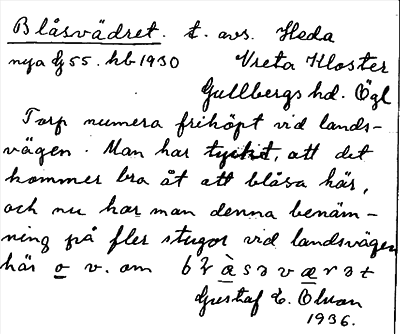 Blåsvädret. t. avs. Heda
nya J 55. hb 1930 Vreta Kloster
Gullbergs hd. Ögl
Torp numera friköpt vid lands-
vägen. Man har tyckt, att det
kommer bra åt att blåsa här,
och nu har man denna benäm-
ning på fler stugor vid landsvägen
här o v. om blåsəværət
Gustaf E. Olson
1936.